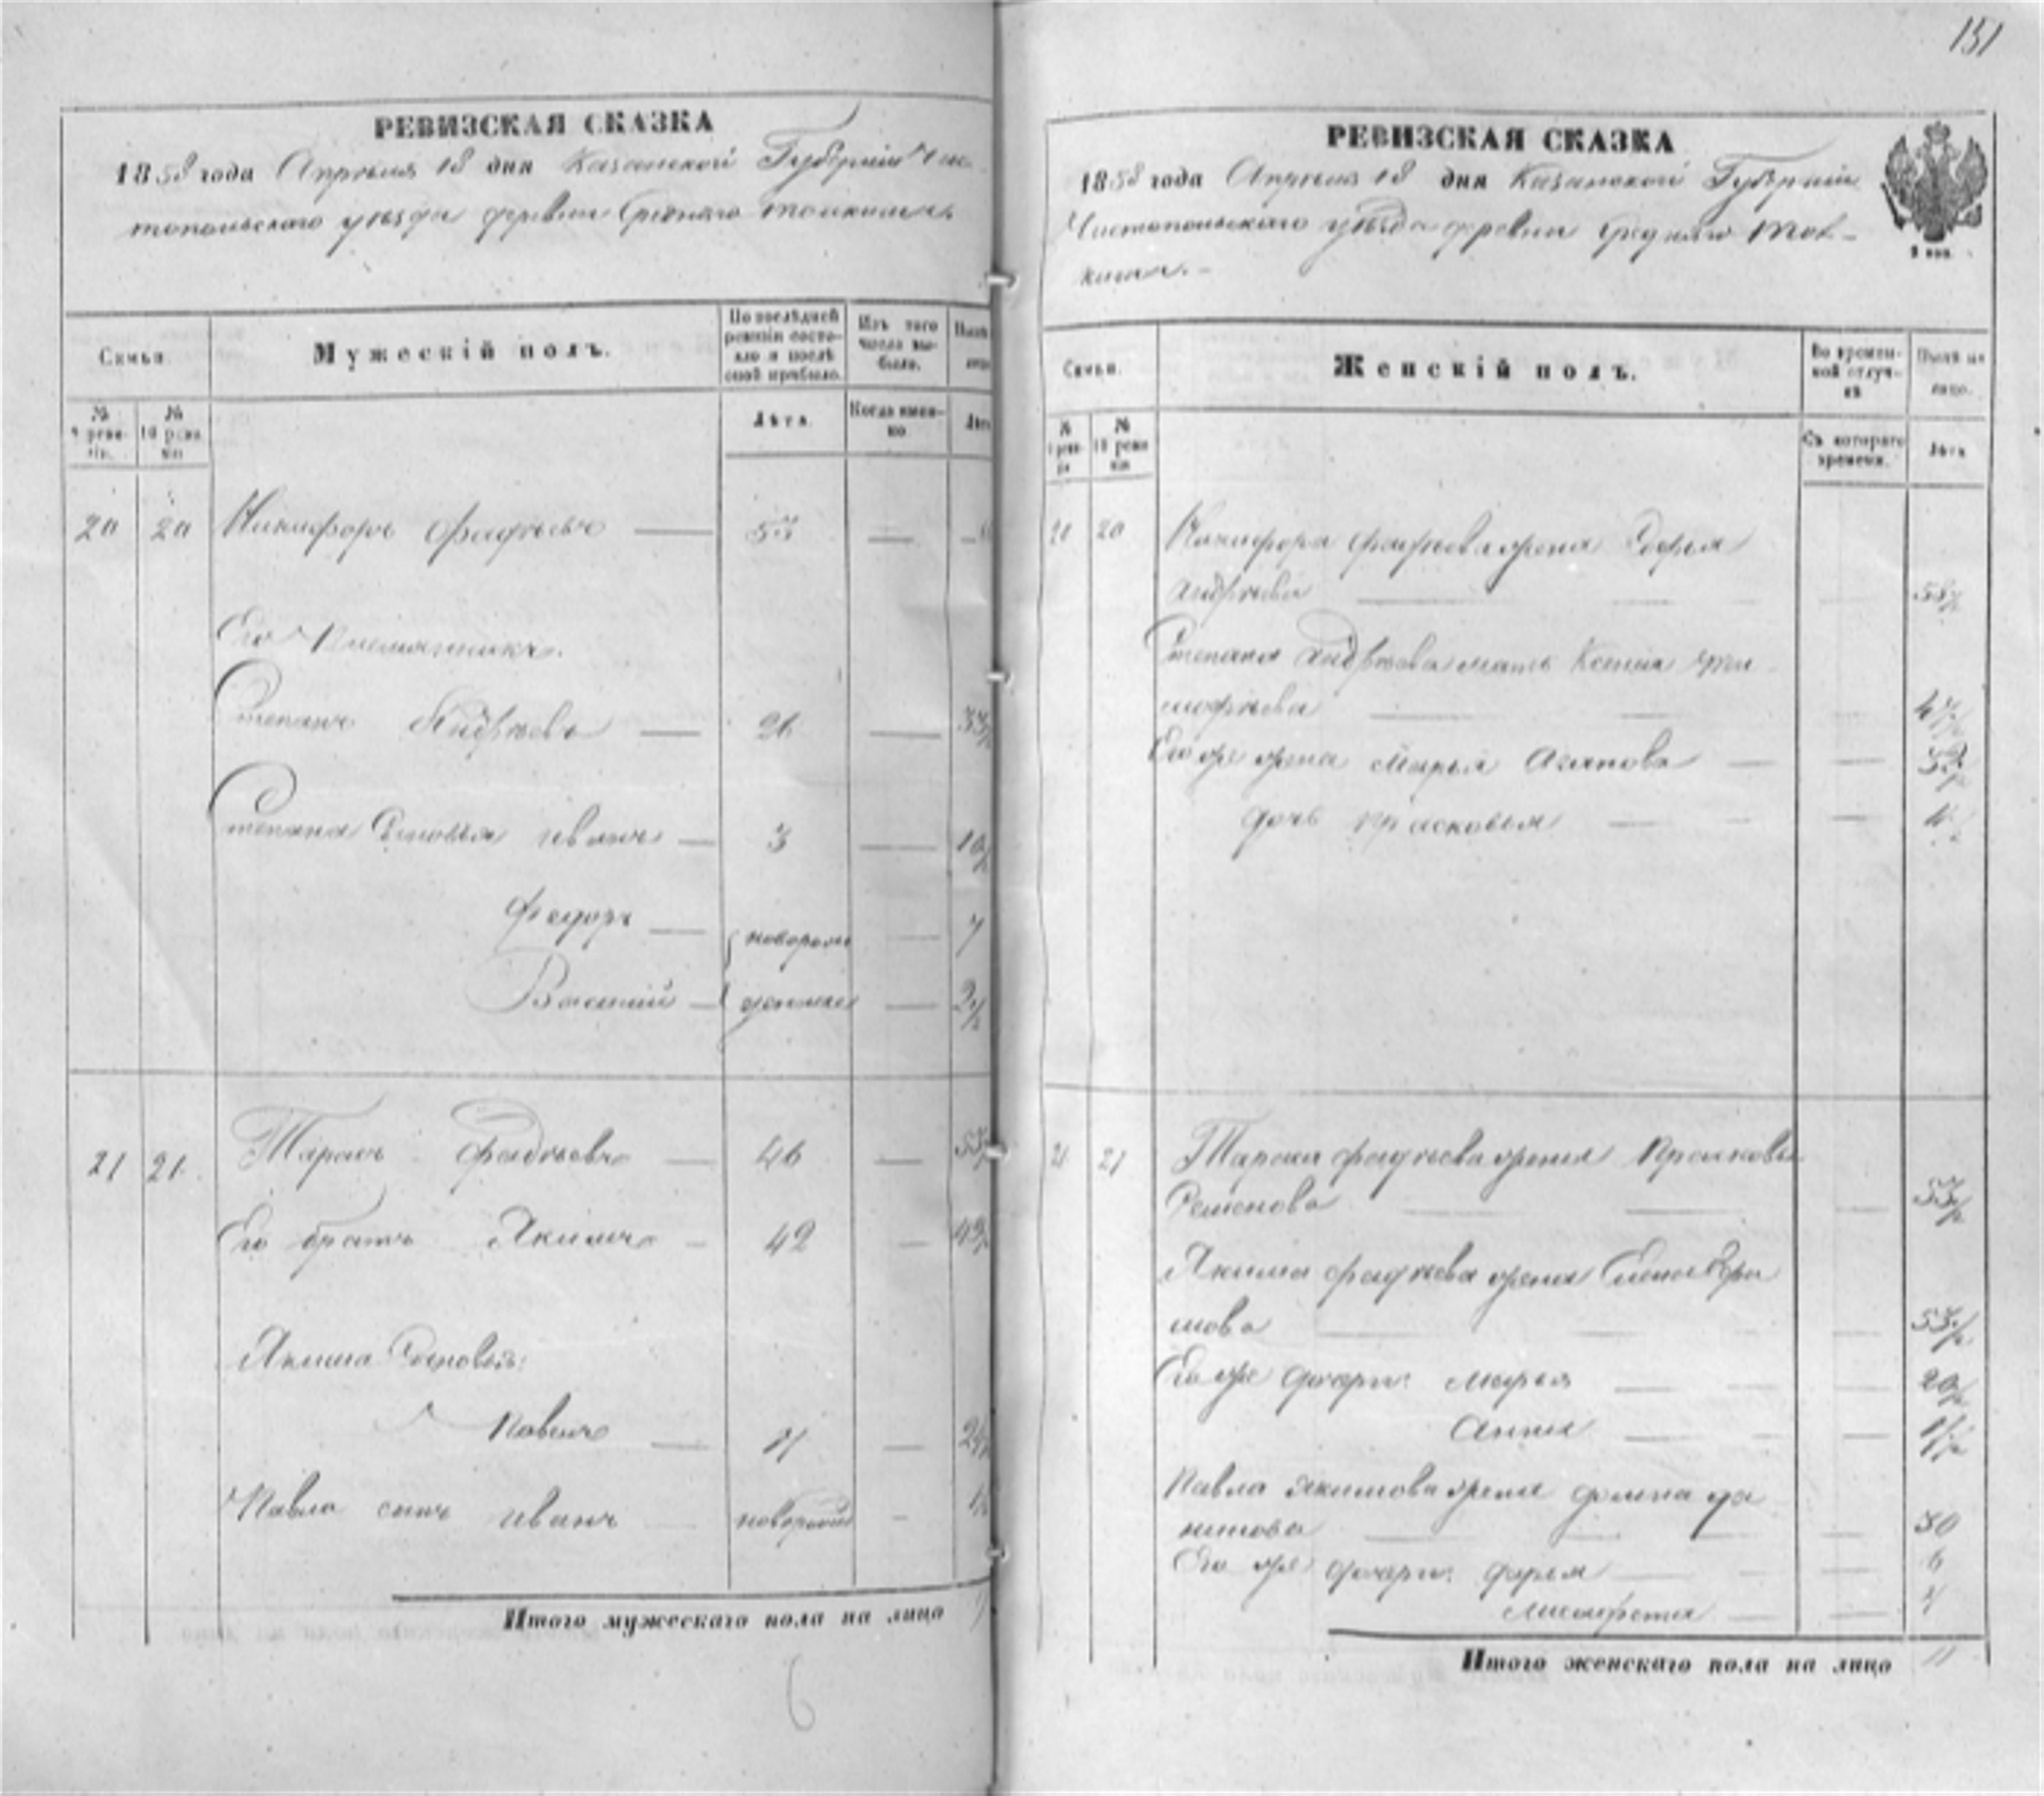 151
РЕВИЗСКАЯ СКАЗКА
1858 года Апреля 18 дня Казанской Губернiи Чис
топольскаго уѣзда деревни Средняго Толкиша
Семьи.
Мужескiй полъ.
По послѣдней ревизiи состо-
яло и послѣ оной прибыло.
Изъ того числа вы-
было.
№ 9 реви-
зiи.
№ 10 реви
зiи
Лѣта.
Когда имен-
но
Лѣта
20 20 Никифоръ Фадѣевъ 53
Его Племянникъ.
Степанъ Андрѣевъ 26 33
Степана Сыновья Иванъ 3 10
Федоръ новорож 7
Василiй 2
21 21 Тарасъ Фадѣевъ 46 53
Его братъ Якимъ 42 49
Якима Сыновья:
Павелъ 24
Павла сынъ Иванъ
Итого мужескаго пола на лицо
6
РЕВИЗСКАЯ СКАЗКА
1858 года Апреля 18 дня Казанской Губернiи
Чистопольскаго уѣзда деревни Средняго Тол-
киша.
Семьи.
Женскiй полъ.
Во времен-
ной отлуч-
кѣ
Нынѣ на
лицо.
№ 10 реви
зiи
Съ котораго
времени.
Лѣта
20 20 Никифора Фадѣева жена Софья
Андрѣева 58
Степана Андрѣева мать Ксенiя Ти
мофѣева
Его же жена Марья Агапова
дочь Прасковья
21 21 Тараса Фадѣева жена Прасковья
Семенова 53
Якима Фадѣева жена Елена Ефи
мова 53
Его же дочери: Марья 20
Анна
Павла Якимова жена Домна Да
нилова 30
Его же дочери: Дарья 6
Итого женскаго пола на лицо 11